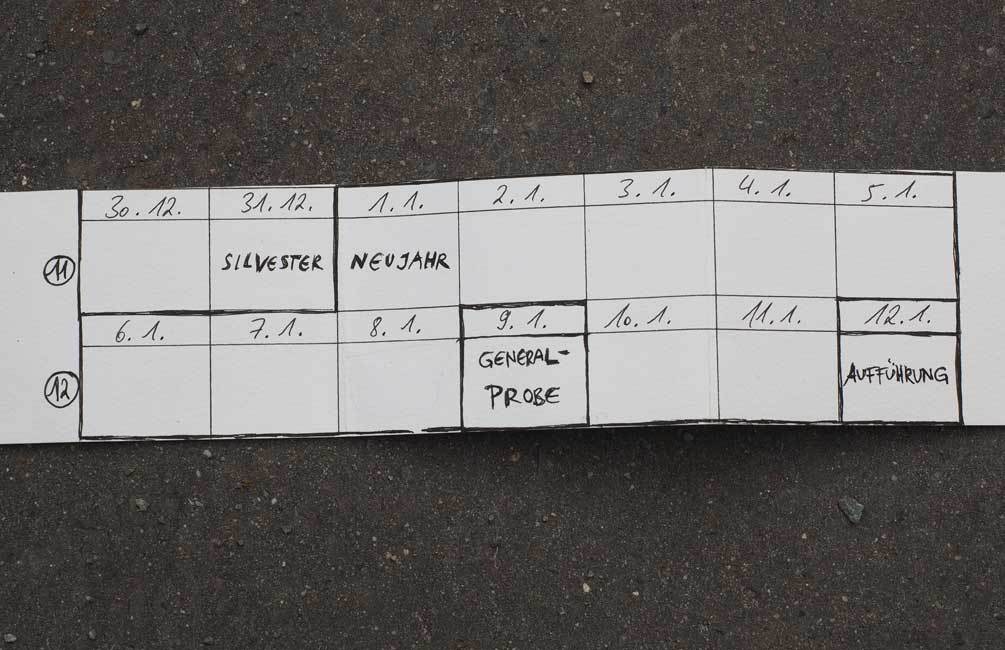 30.12. 31.12. 1.1. 2.1. 3.1. 4.1. 5.1.
11 SILVESTER NEUJAHR
6.1. 7.1. 8.1. 9.1. 10.1. 11.1. 12.1.
12 GENERAL- AUFFÜHRUNG
PROBE